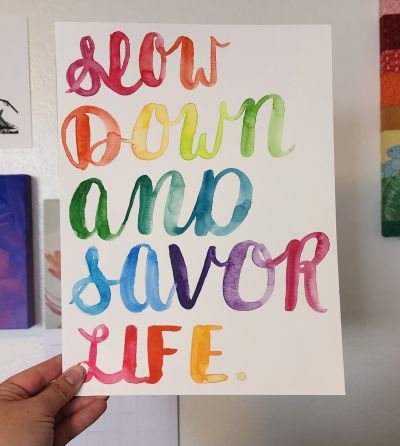 SLOW
DOWN
AND
SAVOR
LIFE.